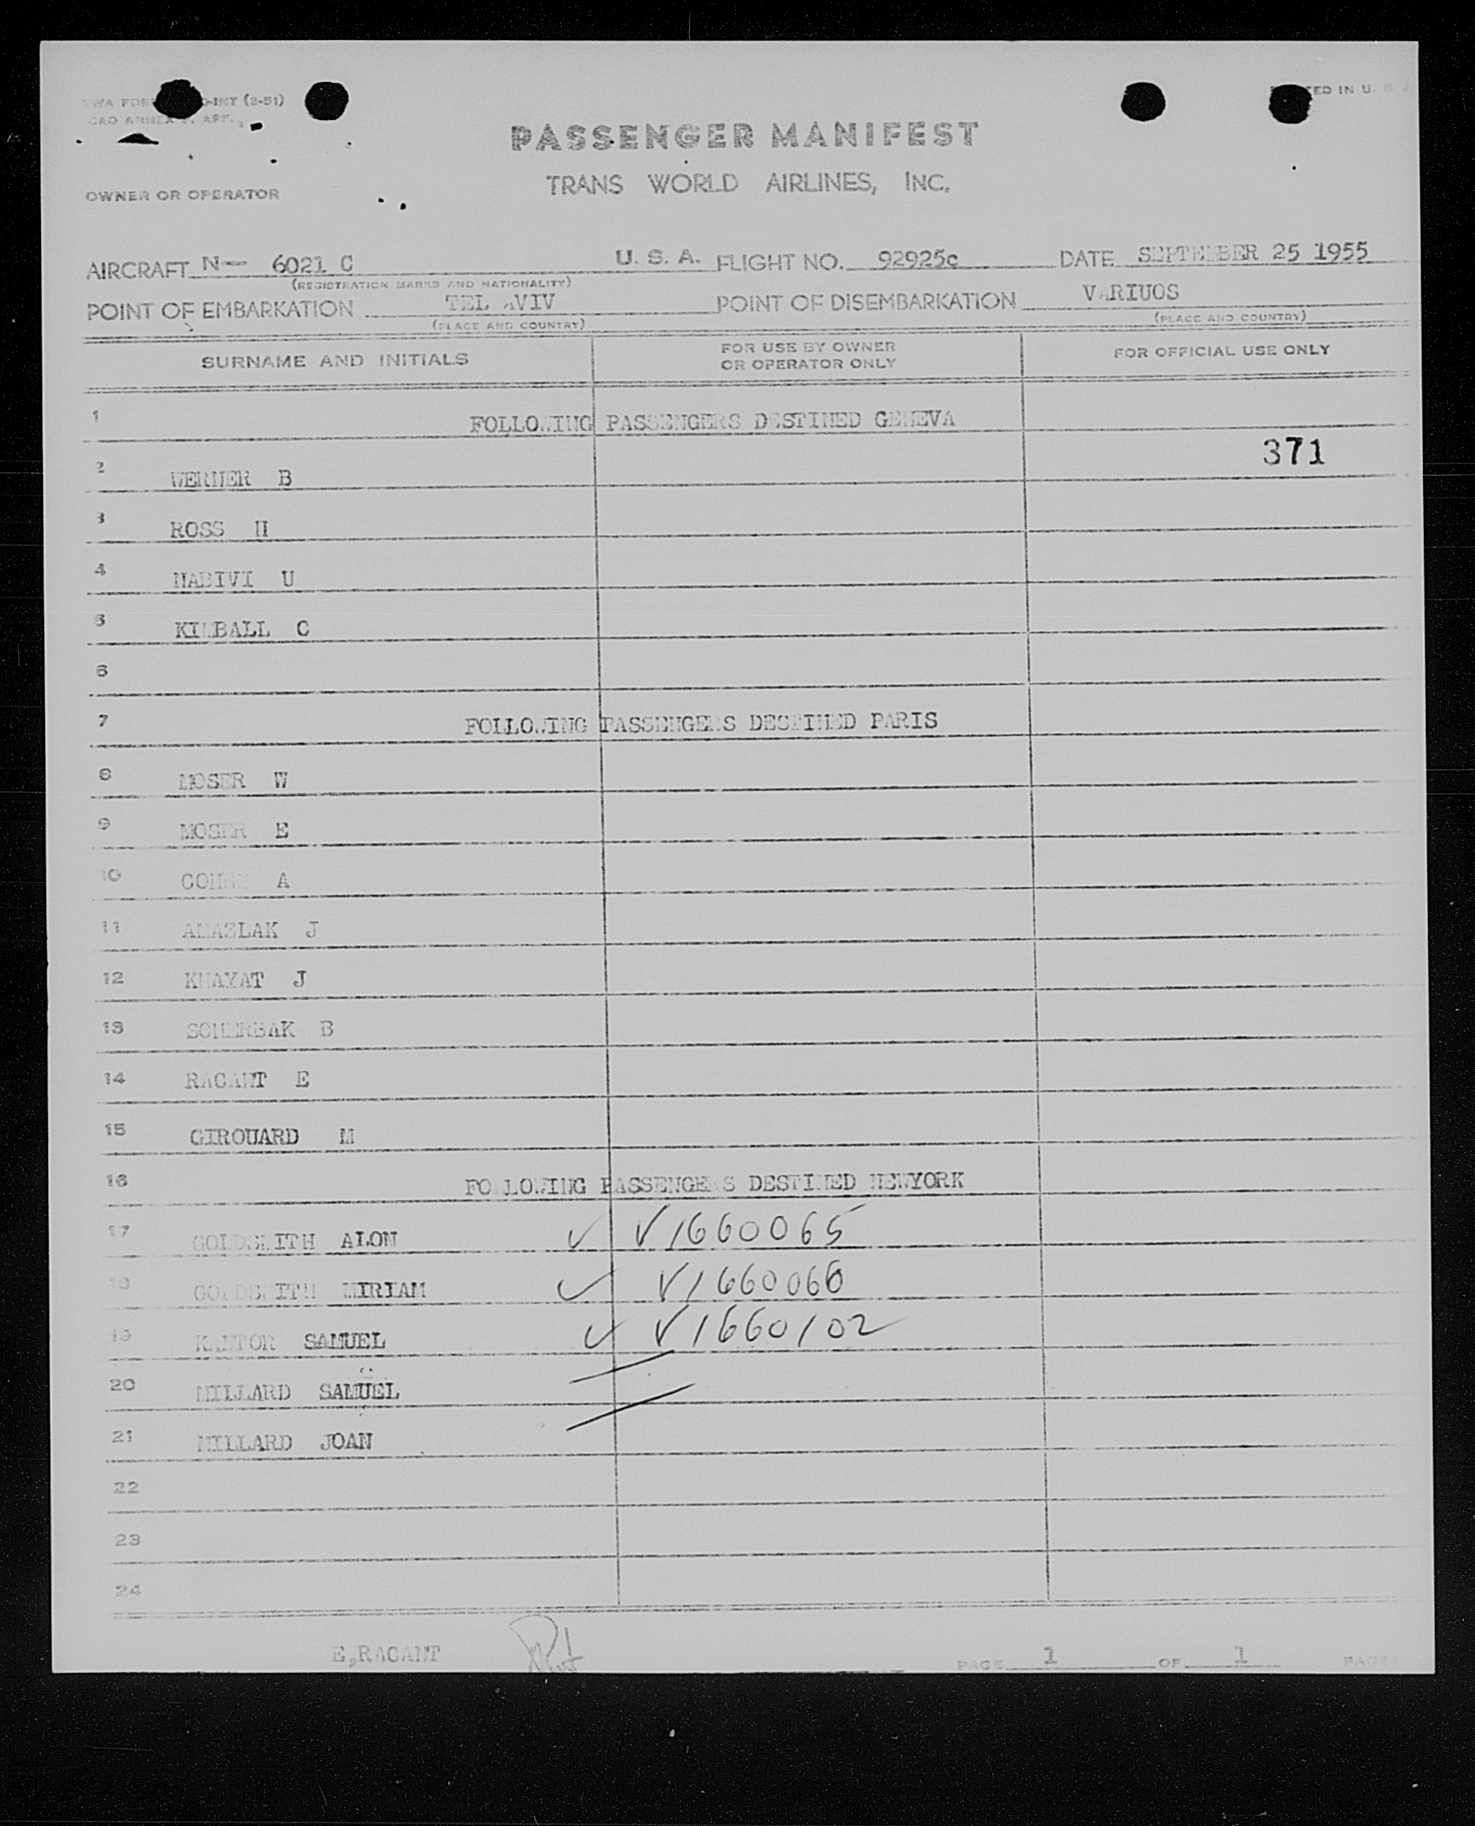 PRINTED IN U. S. A.
PASSENGER MANIFEST
TRANS WORLD AIRLINES, INC.
OWNER OR OPERATOR
AIRCRAFT N- 6021 C U. S. A. FLIGHT NO. 92925c DATE SEPTEMBER 25 1955
(REGISTRATION MARKS AND NATIONALITY)
POINT OF EMBARKATION TEL AVIV POINT OF DISEMBARKATION VARIUOS
(PLACE AND COUNTRY) (PLACE AND COUNTRY)
SURNAME AND INITIALS FOR USE BY OWNER OR OPERATOR ONLY FOR OFFICIAL USE ONLY
1 FOLLOWING PASSENGERS DESTINED GENEVA
371
2 WERNER B
3 ROSS H
4 U
5 KIMBALL C
6
7 FOLLOWING PASSENGERS DESTINED PARIS
8 MOSER W
9 MOSER E
10 A
11 J
12 KHAYAT J
13 SCHERBAK B
14 RACANT E
15 GIROUARD M
16 FOLLOWING PASSENGERS DESTINED NEWYORK
17 GOLDSMITH ALON ✓ V1660065
18 GOLDSMITH MIRIAM ✓ V1660066
19 KANTOR SAMUEL ✓ V1660102
20 MILLARD SAMUEL
21 MILLARD JOAN
22
23
24
E,RACANT
PAGE 1 OF 1 PAGES